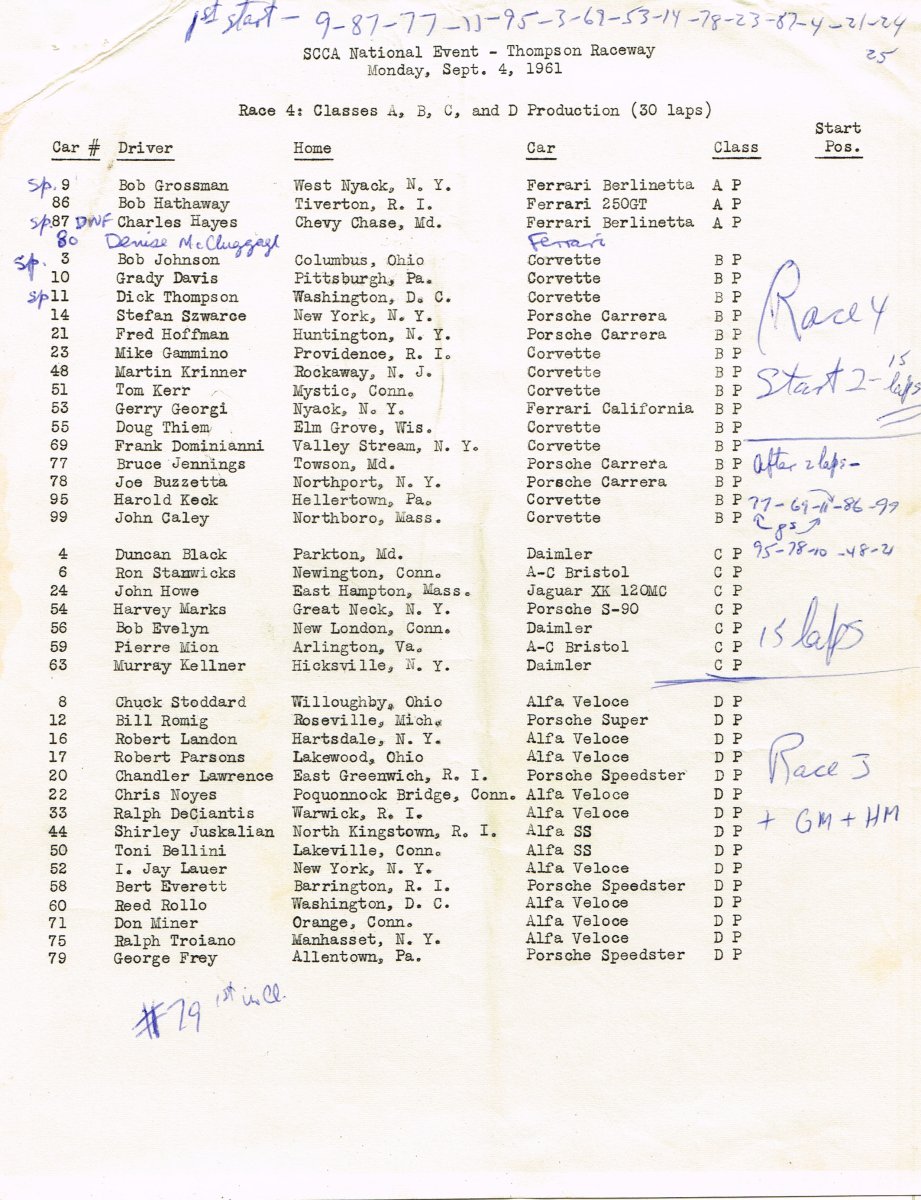 1st start - 9-87-77-11-95-3-69-53-14-78-23-87-4-21-24
25
SCCA National Event - Thompson Raceway
Monday, Sept. 4, 1961
Race 4: Classes A, B, C, and D Production (30 laps)
Car # Driver Home Car Class Start Pos.
sp. 9 Bob Grossman West Nyack, N. Y. Ferrari Berlinetta A P
86 Bob Hathaway Tiverton, R. I. Ferrari 250GT A P
sp. 87 DNF Charles Hayes Chevy Chase, Md. Ferrari Berlinetta A P
80 Denise McCluggage Ferrari
sp. 3 Bob Johnson Columbus, Ohio Corvette B P
10 Grady Davis Pittsburgh, Pa. Corvette B P
sp 11 Dick Thompson Washington, D. C. Corvette B P
14 Stefan Szwarce New York, N. Y. Porsche Carrera B P
21 Fred Hoffman Huntington, N. Y. Porsche Carrera B P
23 Mike Gammino Providence, R. I. Corvette B P
48 Martin Krinner Rockaway, N. J. Corvette B P
51 Tom Kerr Mystic, Conn. Corvette B P
53 Gerry Georgi Nyack, N. Y. Ferrari California B P
55 Doug Thiem Elm Grove, Wis. Corvette B P
69 Frank Dominianni Valley Stream, N. Y. Corvette B P
77 Bruce Jennings Towson, Md. Porsche Carrera B P
78 Joe Buzzetta Northport, N. Y. Porsche Carrera B P
95 Harold Keck Hellertown, Pa. Corvette B P
99 John Caley Northboro, Mass. Corvette B P
Race 4
Start 2 - 15 laps
After 2 laps -
77-69-11-86-99
95-78-10-48-21
4 Duncan Black Parkton, Md. Daimler C P
6 Ron Stanwicks Newington, Conn. A-C Bristol C P
24 John Howe East Hampton, Mass. Jaguar XK 120MC C P
54 Harvey Marks Great Neck, N. Y. Porsche S-90 C P
56 Bob Evelyn New London, Conn. Daimler C P
59 Pierre Mion Arlington, Va. A-C Bristol C P
63 Murray Kellner Hicksville, N. Y. Daimler C P
15 laps
8 Chuck Stoddard Willoughby, Ohio Alfa Veloce D P
12 Bill Romig Roseville, Mich. Porsche Super D P
16 Robert Landon Hartsdale, N. Y. Alfa Veloce D P
17 Robert Parsons Lakewood, Ohio Alfa Veloce D P
20 Chandler Lawrence East Greenwich, R. I. Porsche Speedster D P
22 Chris Noyes Poquonnock Bridge, Conn. Alfa Veloce D P
33 Ralph DeCiantis Warwick, R. I. Alfa Veloce D P
44 Shirley Juskalian North Kingstown, R. I. Alfa SS D P
50 Toni Bellini Lakeville, Conn. Alfa SS D P
52 I. Jay Lauer New York, N. Y. Alfa Veloce D P
58 Bert Everett Barrington, R. I. Porsche Speedster D P
60 Reed Rollo Washington, D. C. Alfa Veloce D P
71 Don Miner Orange, Conn. Alfa Veloce D P
75 Ralph Troiano Manhasset, N. Y. Alfa Veloce D P
79 George Frey Allentown, Pa. Porsche Speedster D P
Race 3
+ GM + HM
#79 1st in Cl.